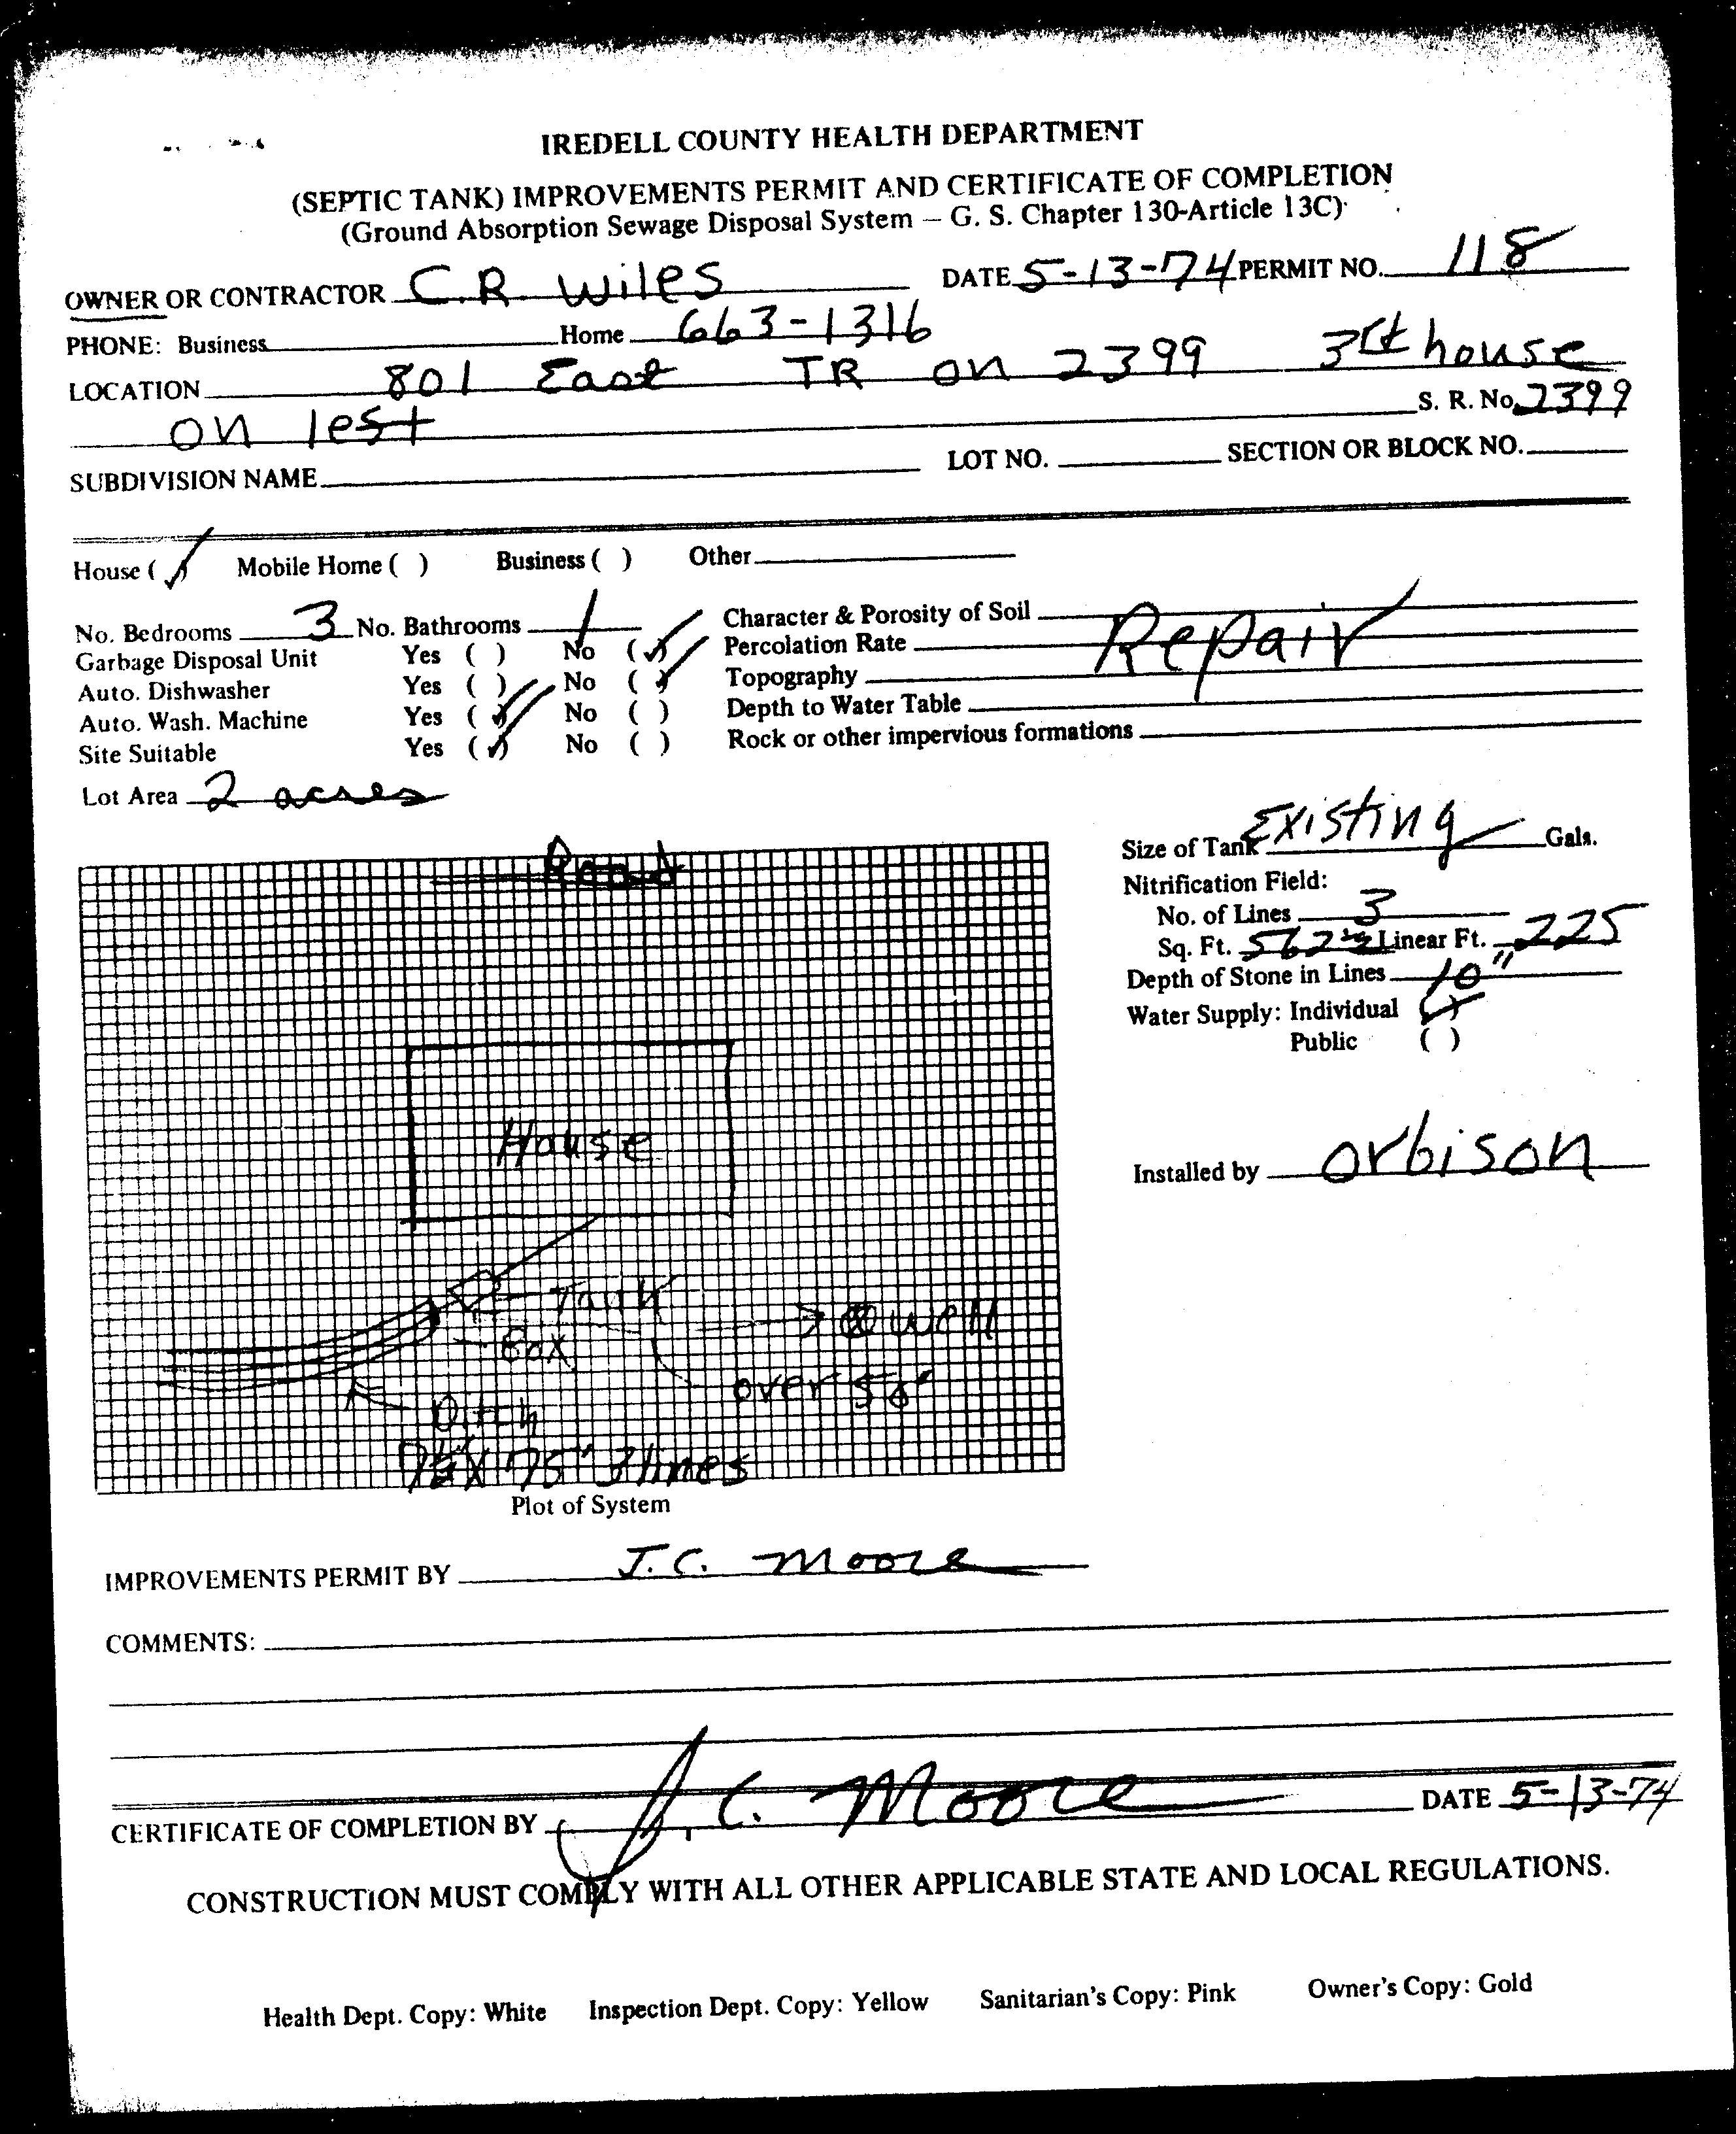 IREDELL COUNTY HEALTH DEPARTMENT
(SEPTIC TANK) IMPROVEMENTS PERMIT AND CERTIFICATE OF COMPLETION
(Ground Absorption Sewage Disposal System – G. S. Chapter 130-Article 13C)
OWNER OR CONTRACTOR C.R. Wiles DATE 5-13-74 PERMIT NO. 118
PHONE: Business Home 663-1316
LOCATION 801 East TR on 2399 3rd house
on left S. R. No. 2399
SUBDIVISION NAME LOT NO. SECTION OR BLOCK NO.
House (✓) Mobile Home ( ) Business ( ) Other
No. Bedrooms 3 No. Bathrooms 1 Character & Porosity of Soil
Garbage Disposal Unit Yes ( ) No (✓) Percolation Rate Repair
Auto. Dishwasher Yes ( ) No (✓) Topography
Auto. Wash. Machine Yes (✓) No ( ) Depth to Water Table
Site Suitable Yes (✓) No ( ) Rock or other impervious formations
Lot Area 2 acres
Road
Size of Tank Existing Gals.
Nitrification Field:
No. of Lines 3
Sq. Ft. 562½ Linear Ft. 225
Depth of Stone in Lines 10"
Water Supply: Individual (✓)
Public ( )
House
Installed by Orbison
Tank
Box
Well
over 50'
Ditch
75' 3 lines
Plot of System
IMPROVEMENTS PERMIT BY J.C. Moore
COMMENTS:
CERTIFICATE OF COMPLETION BY J. C. Moore DATE 5-13-74
CONSTRUCTION MUST COMPLY WITH ALL OTHER APPLICABLE STATE AND LOCAL REGULATIONS.
Health Dept. Copy: White Inspection Dept. Copy: Yellow Sanitarian's Copy: Pink Owner's Copy: Gold